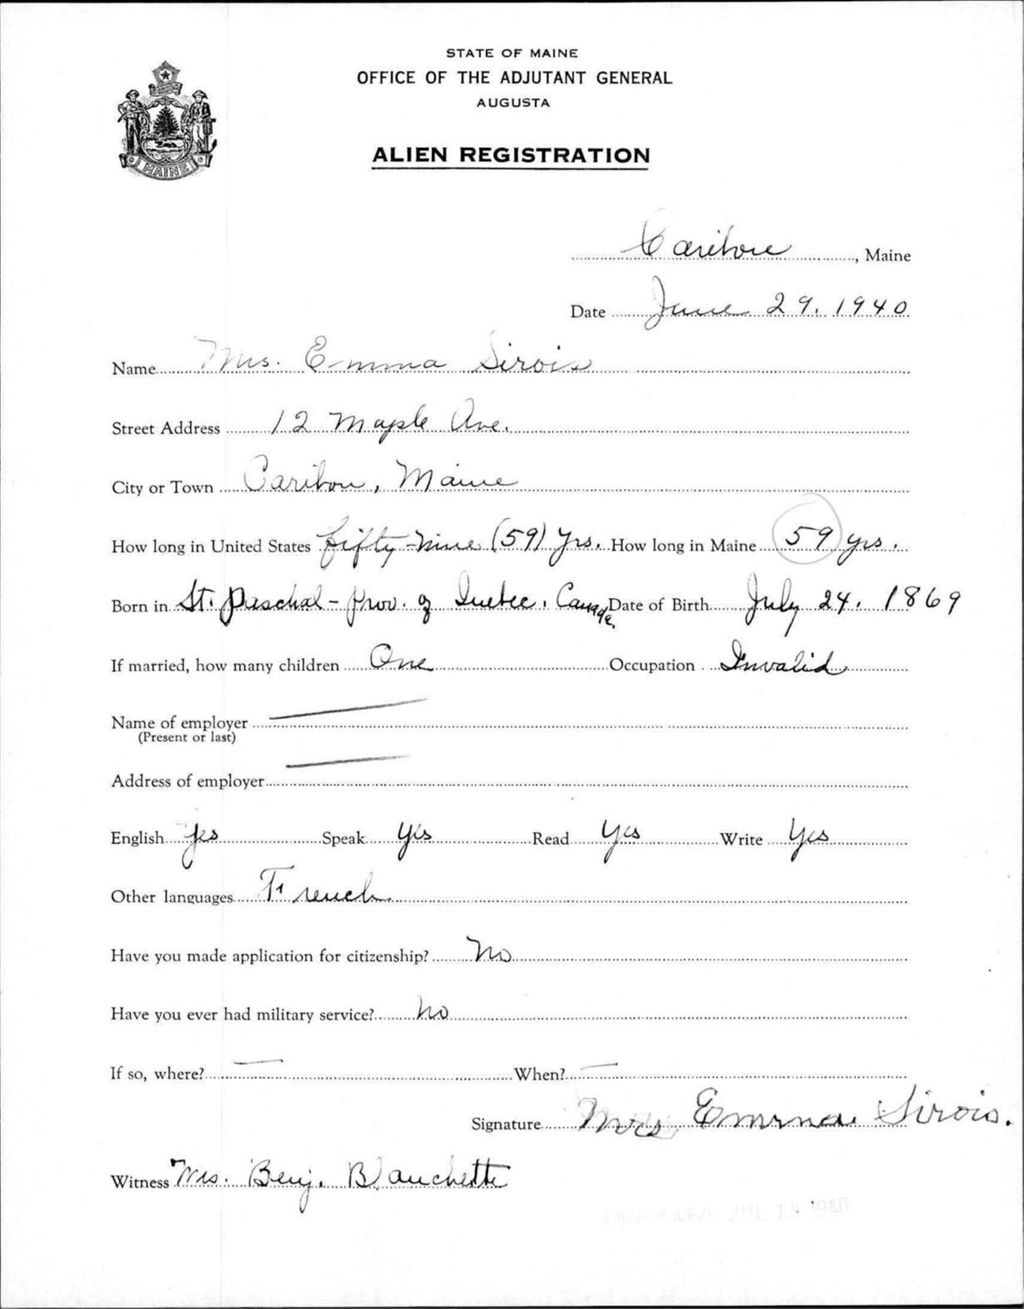 STATE OF MAINE
OFFICE OF THE ADJUTANT GENERAL
AUGUSTA
ALIEN REGISTRATION
MAINE
Caribou, Maine
Date June 29, 1940
Name Mrs. Emma Sirois
Street Address 12 Maple Ave.
City or Town Caribou, Maine
How long in United States fifty-nine (59) yrs. How long in Maine 59 yrs.
Born in St. Paschal - prov. of Quebec, Canada. Date of Birth July 24, 1869
If married, how many children One Occupation Invalid
Name of employer —
(Present or last)
Address of employer —
English Yes Speak Yes Read Yes Write Yes
Other languages French
Have you made application for citizenship? No
Have you ever had military service? No
If so, where? — When? —
Signature Mrs Emma Sirois.
Witness Mrs. Benj. Blanchette